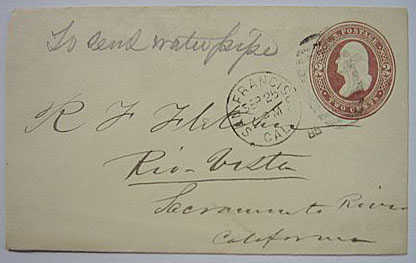 To send water pipe
U.S. POSTAGE
TWO CENTS
SAN FRANCISCO
SEP 25
PM
CAL.
R F
Rio-Vista
Sacramento River
California